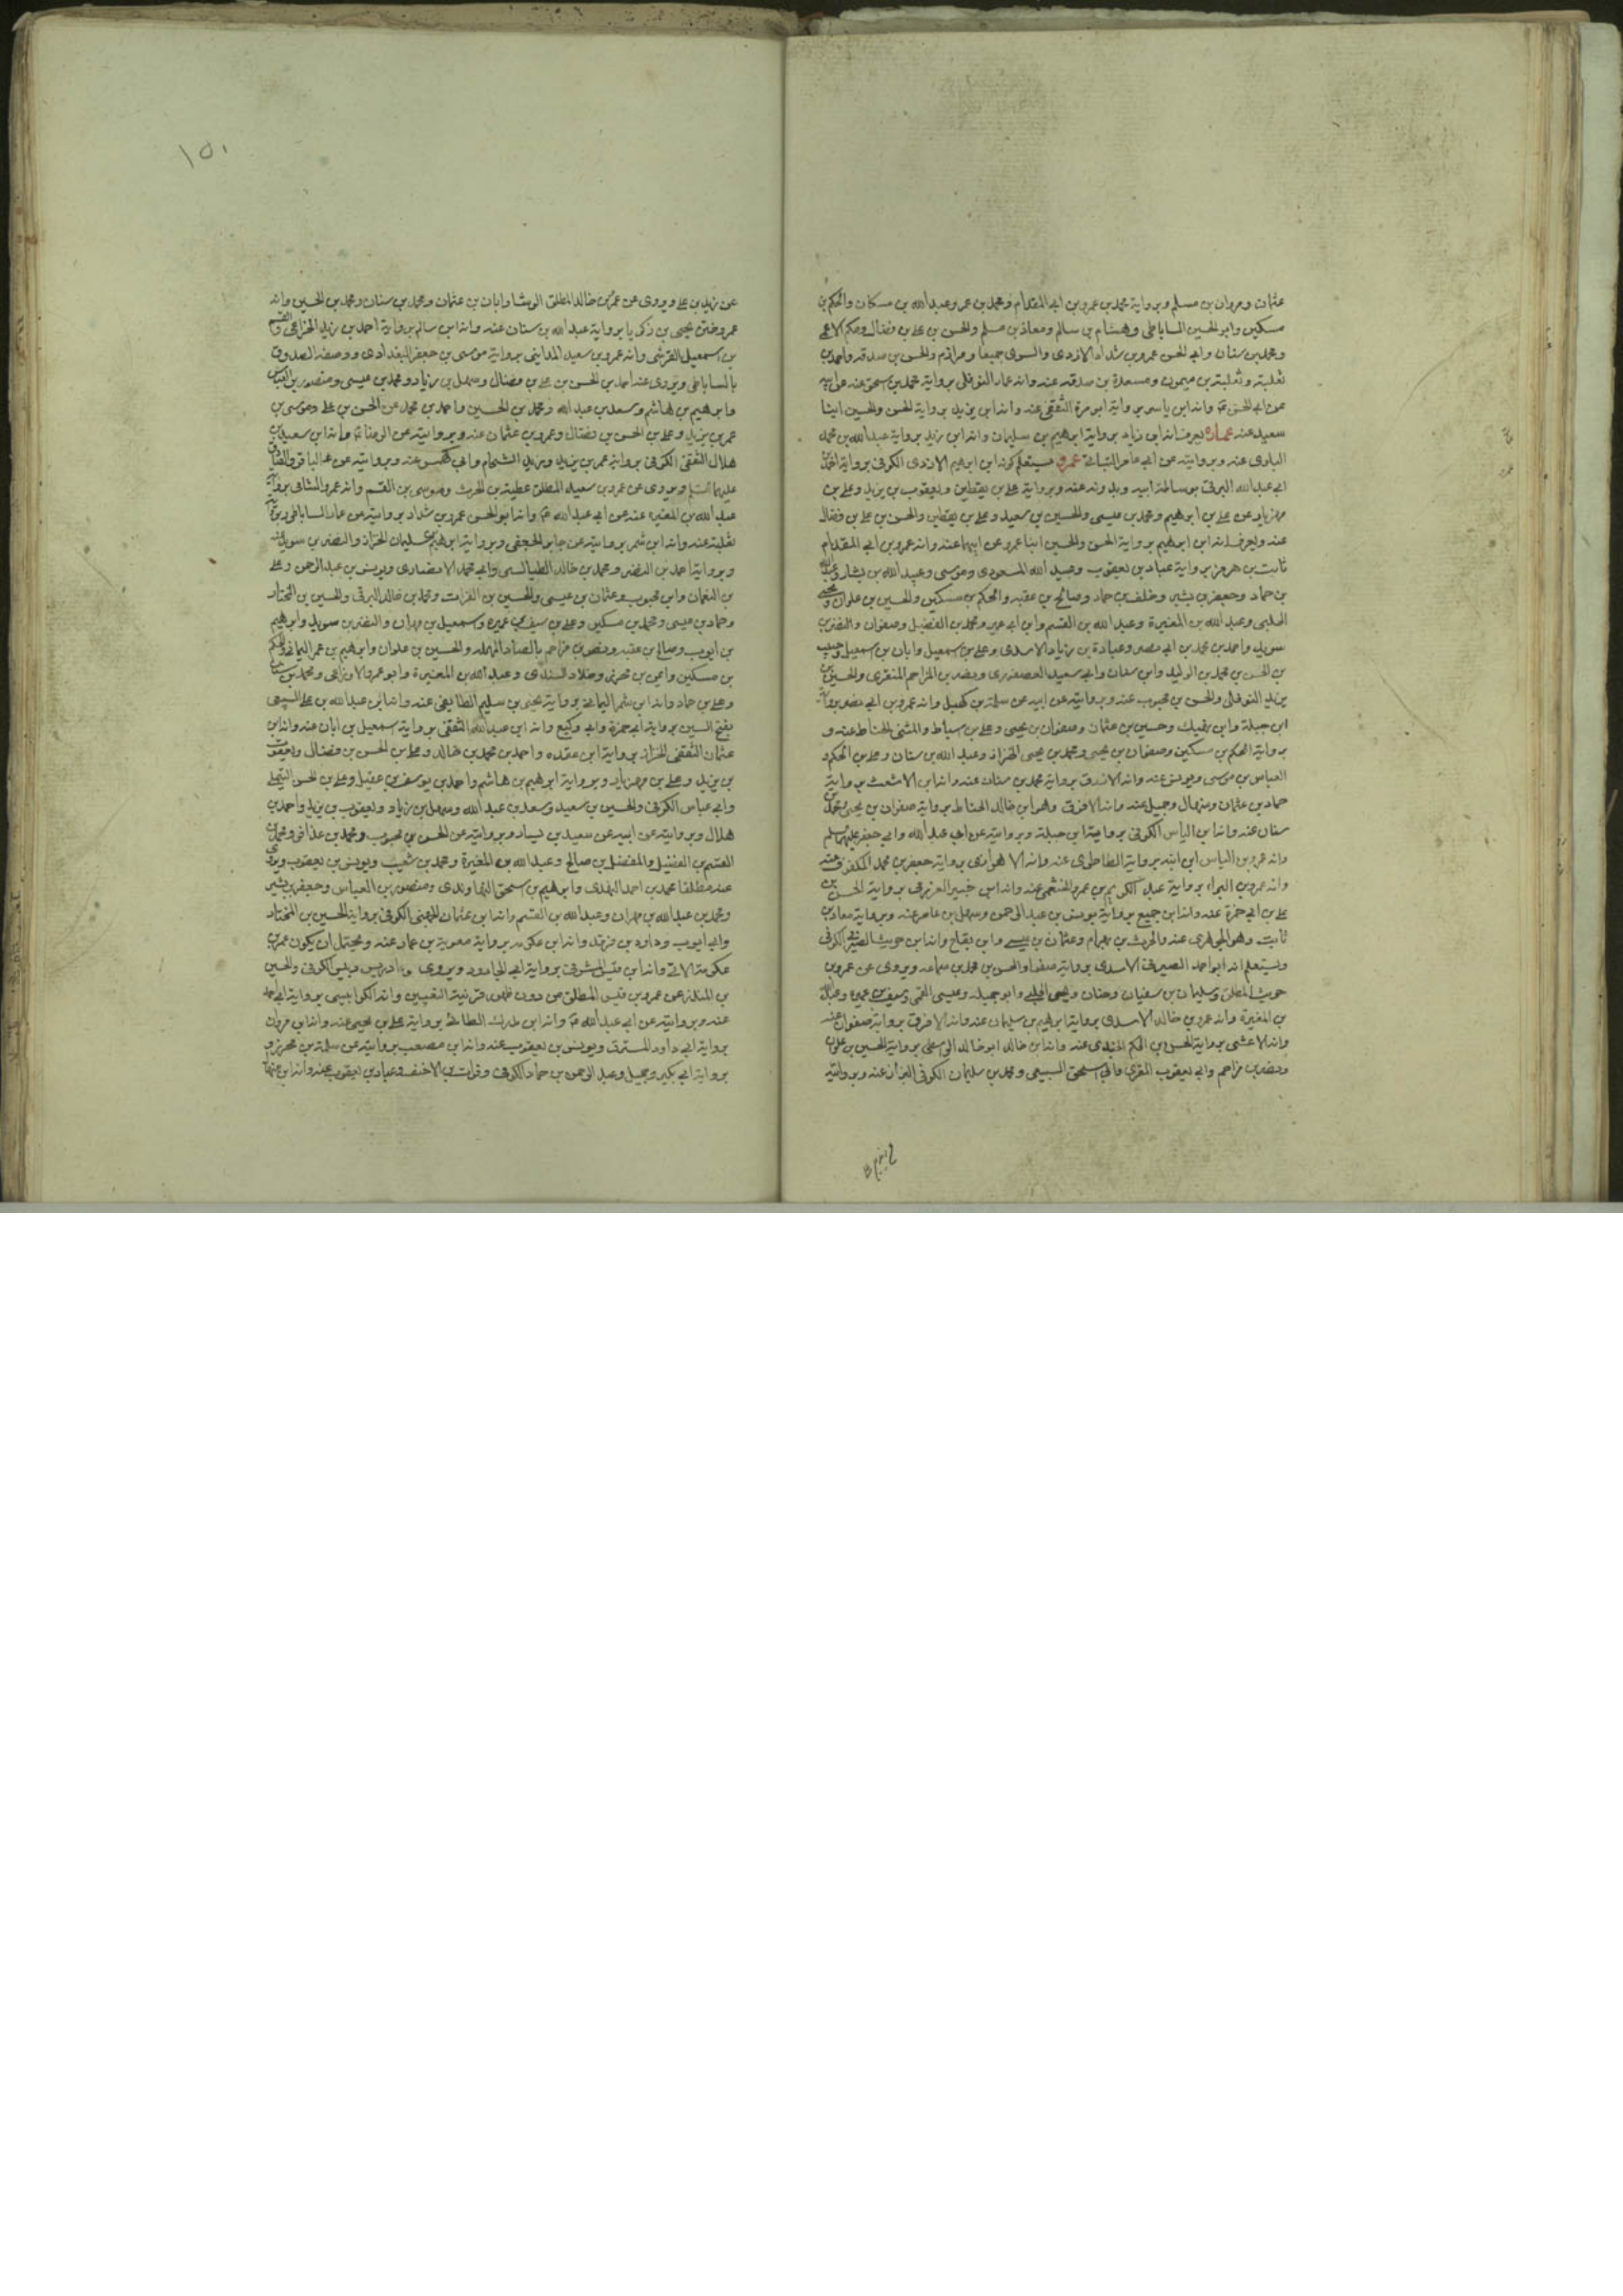 عثمان ومروان بن مسلم وبرواية محمد بن عمرو بن ابي المقدام ومحمد بن عمر وعبد الله بن مسكان والحكم بن
مسكين وابو الحسين الساباطي وهشام بن سالم ومعاذ بن مسلم والحسن بن علي بن فضال وحكم الاعمى
ومحمد بن سنان وابي الحسن عمرو بن شداد الازدي والسري جميعا ومرازم والحسن بن صدقه واحمد بن
ثعلبة وثعلبة بن ميمون ومسعدة بن صدقه عنه وانه عمار النوفلي برواية محمد بن اسحق عنه عن ابيه
عن ابي الحسن ع وانه ابن ياسر برواية ابو مرة الثقفي عنه وانه ابن يزيد برواية الحسن والحسين ابنا
سعيد عنه عمارة يعرف انه ابن زياد برواية ابراهيم بن سليمان وانه ابن زيد برواية عبد الله بن محمد
البلوى عنه وبروايته عن ابي عامر التباني عمرو يستعلم كونه ابن ابرهيم الازدي الكوفي برواية احمد بن
ابي عبد الله البرقي بوساطة ابيه وبدونه عنه وبرواية علي بن يقطين ويعقوب بن يزيد وعلي بن
مهزيار عن علي بن ابرهيم ومحمد بن عيسى والحسين بن سعيد وعلي بن يقطين والحسن بن علي بن فضال
عنه ويعرف انه ابن ابرهيم برواية الحسن والحسين ابنا عمرو عن ابيهما عنه وانه عمرو بن ابي المقدام
ثابت بن هرمز برواية عباد بن يعقوب وعبيد الله المسعودي وموسى وعبيد الله بن يشار وعبد الله
بن حماد وجعفر بن بشير وخلف بن حماد وصالح بن عقبه والحكم بن مسكين والحسين بن علوان ويحيى
الحلبي وعبد الله بن المغيرة وعبد الله بن القسم وابن ابي عمير ومحمد بن الفضيل وصفوان والنضر بن
سويد واحمد بن محمد بن ابي نصر وعبادة بن زياد الاسدي وعلي بن سمعيل وابان بن اسمعيل وحبيب
بن الحسن بن محمد بن الوليد وابن سنان وابي سعيد العصفوري ونصر بن المزاحم المنقري والحسين بن
يزيد النوفلي والحسن بن محبوب عنه وبروايته عن ابيه عن سلمة بن كهيل وانه عمرو بن ابي نصر برواية
ابن جبلة وابن نهيك وحسين بن عثمان وصفوان بن يحيى وعلي بن سباط والمثنى الحناط عنه و
برواية الحكم بن مسكين وصفوان بن يحيى ومحمد بن يحيى الخزاز وعبد الله بن سنان وعلي بن الحكم و
العباس بن موسى ويونس عنه وانه الازرق برواية محمد بن سنان عنه وانه ابن الاشعث برواية
حماد بن عثمان ومنهال وجميل عنه وانه الافرق وهو ابن خالد الحناط برواية صفوان بن يحيى ومحمد بن
سنان عنه وانه ابن الياس الكوفي برواية ابن جبلة وبروايته عن ابي عبد الله وابي جعفر عليهما السلم
وانه عمرو بن الياس ابن ابنه برواية الطاطري عنه وانه الاهوازي برواية جعفر بن محمد المكفوف عنه
وانه عمرو بن البراء برواية عبد الكريم بن عمرو الخثعمي عنه وانه ابن جبير العزرمي برواية الحسن بن
علي بن ابي حمزة عنه وانه ابن جميع برواية يونس بن عبد الرحمن وسهل بن عامر عنه وبرواية معاذ بن
ثابت وهو الجوهري عنه والحرث بن بهرام وعثمان بن عيسى وابن بقاح وانه ابن حريث الصيرفي الكوفي
ويستعلم انه ابو احمد الصيرفي الاسدي برواية صفوان والحسن بن محمد بن سماعه ويروى عن عمرو بن
حريث المطلق وسليمان بن سفيان وحنان ويحيى الحلبي وابو جميله وعيسى القمي وسيف بن عميره وعبد الله
بن المغيرة وانه عمرو بن خالد الاسدي برواية ابرهيم بن سليمان عنه وانه الافرق برواية صفوان عنه
وانه الاعشى برواية الحسن بن الحكم عنه وانه ابن خالد ابو خالد الواسطي برواية الحسين بن علوان
ونصر بن مزاحم وابي يعقوب المقري وابي اسحق السبيعي ومحمد بن سليمان الكوفي البزاز عنه وبروايته
١٥٠
عن زيد بن علي ويروى عن عمرو بن خالد المطلق الوشا وابان بن عثمان ومحمد بن سنان ومحمد بن الحسين وانه
عمرو ختن يحيى بن زكريا برواية عبد الله بن سنان عنه وانه ابن سالم برواية احمد بن زيد الخزاعي والقسم
بن اسمعيل القرشي وانه عمرو بن سعيد المدايني برواية موسى بن جعفر البغدادي ووصفه الصدوق
بالساباطي ويروى عنه احمد بن الحسن بن علي بن فضال وسهل بن زياد ومحمد بن عيسى ومنصور بن العباس
وابرهيم بن هاشم وسعد بن عبد الله ومحمد بن الحسين واحمد بن محمد عن الحسن بن علي وموسى بن
عمر بن يزيد وعلي بن الحسن بن فضال وعمرو بن عثمان عنه وبروايته عن الرضا ع وانه ابن سعيد بن
هلال الثقفي الكوفي برواية عمر بن يزيد ويزيد الشحام وابي كهمس عنه وبروايته عن الباقر والصادق
عليهما السلم ويروى عن عمرو بن سعيد المطلق عطية بن الحرث وموسى بن القسم وانه عمرو الشامي برواية
عبد الله بن المغيره عنه عن ابي عبد الله ع وانه ابو الحسن عمرو بن شداد بروايته عن عمار الساباطي
ثعلبة عنه وانه ابن شمر بروايته عن جابر الجعفي وبرواية ابرهيم بن سليمان الخزاز والنضر بن سويد عنه
وبرواية احمد بن النضر ومحمد بن خالد الطيالسي وابي محمد الانصاري ويونس بن عبد الرحمن وعلي
بن النعمان وابن محبوب وعثمان بن عيسى والحسين بن الفرات ومحمد بن خالد البرقي والحسين بن المختار
وحماد بن عيسى ومحمد بن مسكين وعلي بن سيف بن عميره وسمعيل بن مهران والنضر بن سويد وابرهيم
بن ايوب وصالح بن عقبه ونصر بن مزاحم بالصاد المهمله والحسين بن علوان وابرهيم بن عمر اليماني والحكم
بن مسكين وايمن بن محرز وخلاد السندي وعبد الله بن المغيرة وابو عمرو الاوزاعي ومحمد بن سنان
وعلي بن حماد وانه ابن شمر اليماني برواية يحيى بن سليم الطايفي عنه وانه ابن عبد الله بن علي السبيعي
بفتح السين برواية ابي حمزة وابي وكيع وانه ابن عبد الله الثقفي برواية سمعيل بن ابان عنه وانه ابن
عثمان الثقفي الخزاز برواية ابن عقده واحمد بن محمد بن خالد وعلي بن الحسن بن فضال ويعقوب
بن يزيد وعلي بن مهزيار وبرواية ابرهيم بن هاشم واحمد بن يوسف بن عقيل وعلي بن الحسن التيملي
وابي عباس الكوفي والحسين بن سعيد وسعد بن عبد الله وسهل بن زياد ويعقوب بن يزيد واحمد بن
هلال وبروايته عن ابيه عن سعيد بن يسار وبروايته عن الحسن بن محبوب ومحمد بن عذافر ومحمد بن
القسم بن الفضيل والمفضل بن صالح وعبد الله بن المغيرة ومحمد بن شعيب ويونس بن يعقوب ويروي
عنه مطلقا محمد بن احمد النهدي وابرهيم بن اسحق النهاوندي ومنصور بن العباس وجعفر بن بشير
ومحمد بن عبد الله بن مهران وعبد الله بن القسم وانه ابن عثمان الجهني الكوفي برواية الحسين بن المختار
وابي ايوب وداود بن فرقد وانه ابن عكرمه برواية معوية بن عمار عنه ويحتمل ان يكون عمرو بن
عكرمة الاتي وانه ابن قيس المشرقي برواية ابي الجارود ويروى ادريس وقيس الكوفي والحسين
بن المنذر عن عمرو بن قيس المطلق من دون ظهور قرينة التعيين وانه الكرابيسي برواية
عنه وبروايته عن ابي عبد الله ع وانه ابن مدرك الطائي برواية علي بن يحيى عنه وانه ابن مروان
برواية ابي داود المسترق ويونس بن يعقوب عنه وانه ابن مصعب بروايته عن سلمة بن محرز و
برواية ابي بكير وجميل وعبد الرحمن بن حماد الكوفي وفرات بن الاخنف وعباد بن يعقوب عنه وانه ابن